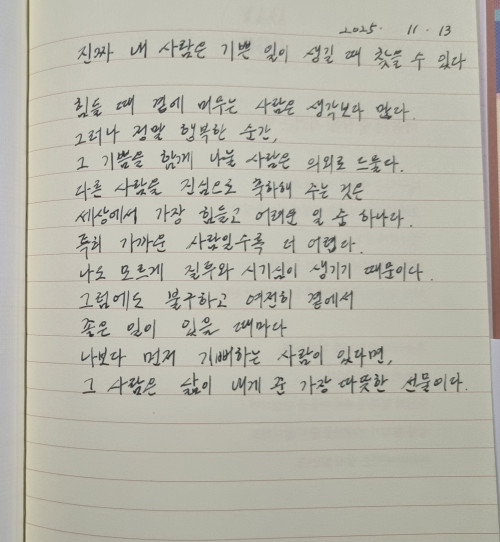 2025. 11. 13
진짜 내 사람은 기쁜 일이 생길 때 찾을 수 있다
힘들 때 곁에 머무는 사람은 생각보다 많다.
그러나 정말 행복한 순간,
그 기쁨을 함께 나눌 사람은 의외로 드물다.
다른 사람을 진심으로 축하해 주는 것은
세상에서 가장 힘들고 어려운 일 중 하나다.
특히 가까운 사람일수록 더 어렵다.
나도 모르게 질투와 시기심이 생기기 때문이다.
그럼에도 불구하고 여전히 곁에서
좋은 일이 있을 때마다
나보다 먼저 기뻐하는 사람이 있다면,
그 사람은 삶이 내게 준 가장 따뜻한 선물이다.